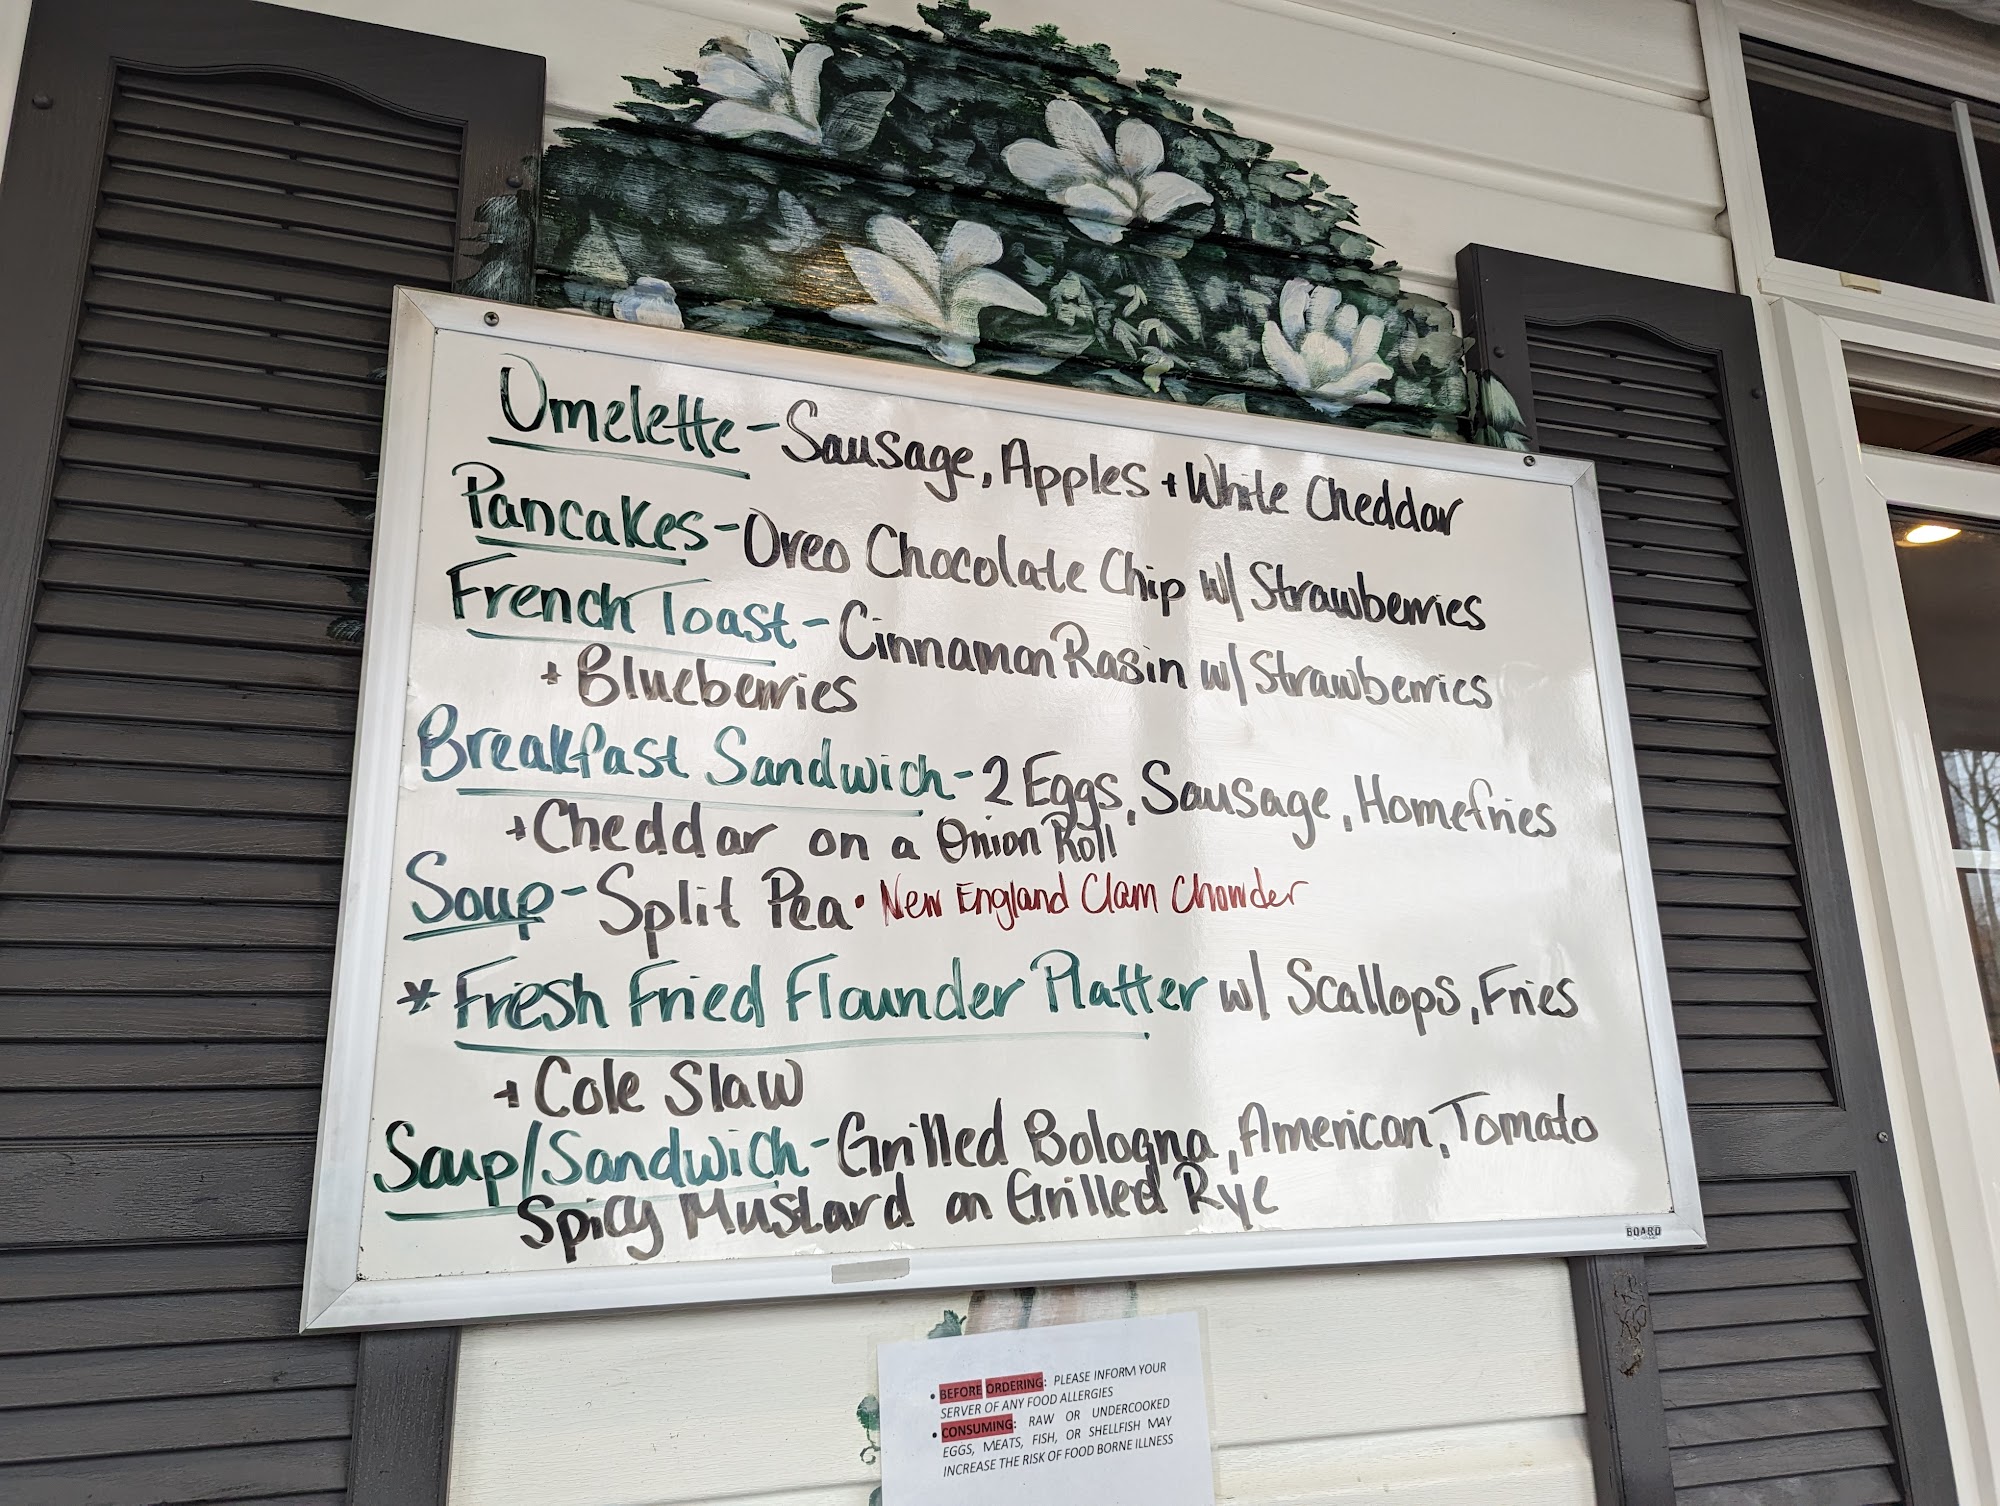 Omelette - Sausage, Apples + White Cheddar
Pancakes - Oreo Chocolate Chip w/ Strawberries
French Toast - Cinnamon Rasin w/ Strawberries
+ Blueberries
Breakfast Sandwich - 2 Eggs, Sausage, Homefries
+ Cheddar on a Onion Roll
Soup - Split Pea • New England Clam Chowder
* Fresh Fried Flounder Platter w/ Scallops, Fries
+ Cole Slaw
Soup/Sandwich - Grilled Bologna, American, Tomato
Spicy Mustard on Grilled Rye
BOARD
• BEFORE ORDERING: PLEASE INFORM YOUR
SERVER OF ANY FOOD ALLERGIES
• CONSUMING: RAW OR UNDERCOOKED
EGGS, MEATS, FISH, OR SHELLFISH MAY
INCREASE THE RISK OF FOOD BORNE ILLNESS